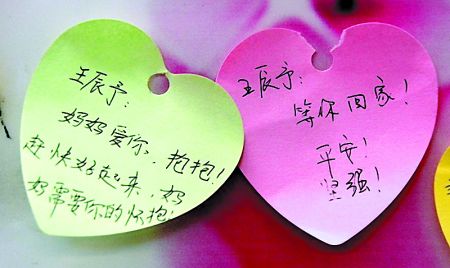 王辰予：
妈妈爱你，抱抱！
赶快好起来，妈
妈需要你的怀抱！
王辰予：
等你回家！
平安！
坚强！